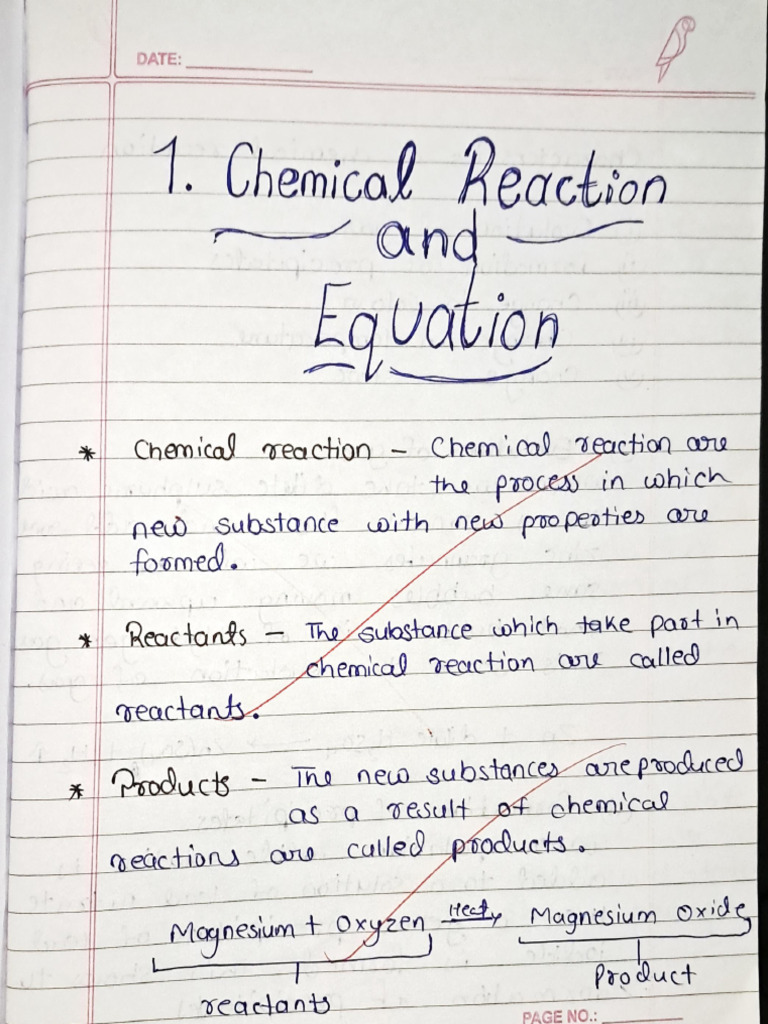 DATE:
1. Chemical Reaction
and
Equation
* Chemical reaction - Chemical reaction are
the process in which
new substance with new properties are
formed.
* Reactants - The substance which take part in
chemical reaction are called
reactants.
* Products - The new substances are produced
as a result of chemical
reactions are called products.
Magnesium + Oxyzen Heat Magnesium Oxide
reactants Product
PAGE NO.: